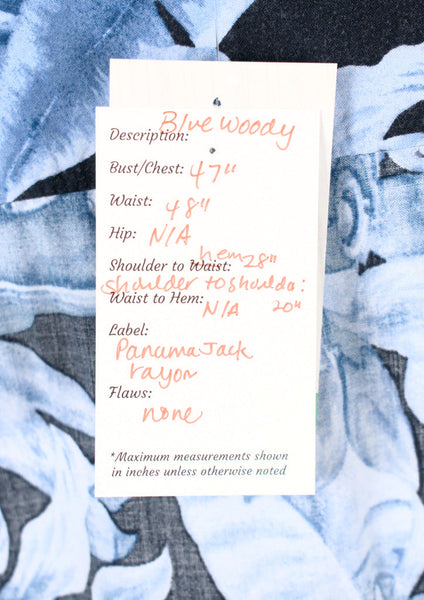 Description: Blue Woody
Bust/Chest: 47"
Waist: 48"
Hip: N/A
hem
Shoulder to Waist: 28"
Shoulder to shoulder: 20"
Waist to Hem: N/A
Label:
Panama Jack
rayon
Flaws:
none
*Maximum measurements shown
in inches unless otherwise noted